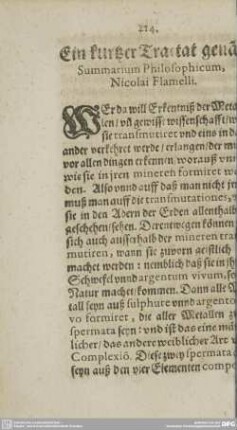 214.
Ein kurtzer Tractat genā
Summarium Philosophicum,
Nicolai Flamelli.
WEr da will Erkentniß der Meta
len/ vñ gewisse wissenschafft/ w
sie transmutiret vnd eins in da
ander verkehret werde/ erlangen/ der mu
vor allen dingen erkennen worauß vnn
wie sie in jren mineren formiret we
den. Also vnnd auff daß man nicht jr
muß man auff die transmutationes, w
sie in den Adern der Erden allenthalb
geschehen/ sehen. Derentwegen können
sich auch ausserhalb der mineren tran
mutiren, wann sie zuvorn geistlich
machet werden: nemblich daß sie in jh
Schwefel vnnd argentum vivum, so
Natur machet/ kommen. Dann alle M
tall seyn auß sulphure vnnd argento
vo formiret, die aller Metallen z
spermata seyn: vnd ist das eine mä
licher/ das andere weiblicher Art v
Complexiō. Diese zwey spermata
seyn auß den vier Elementen compo